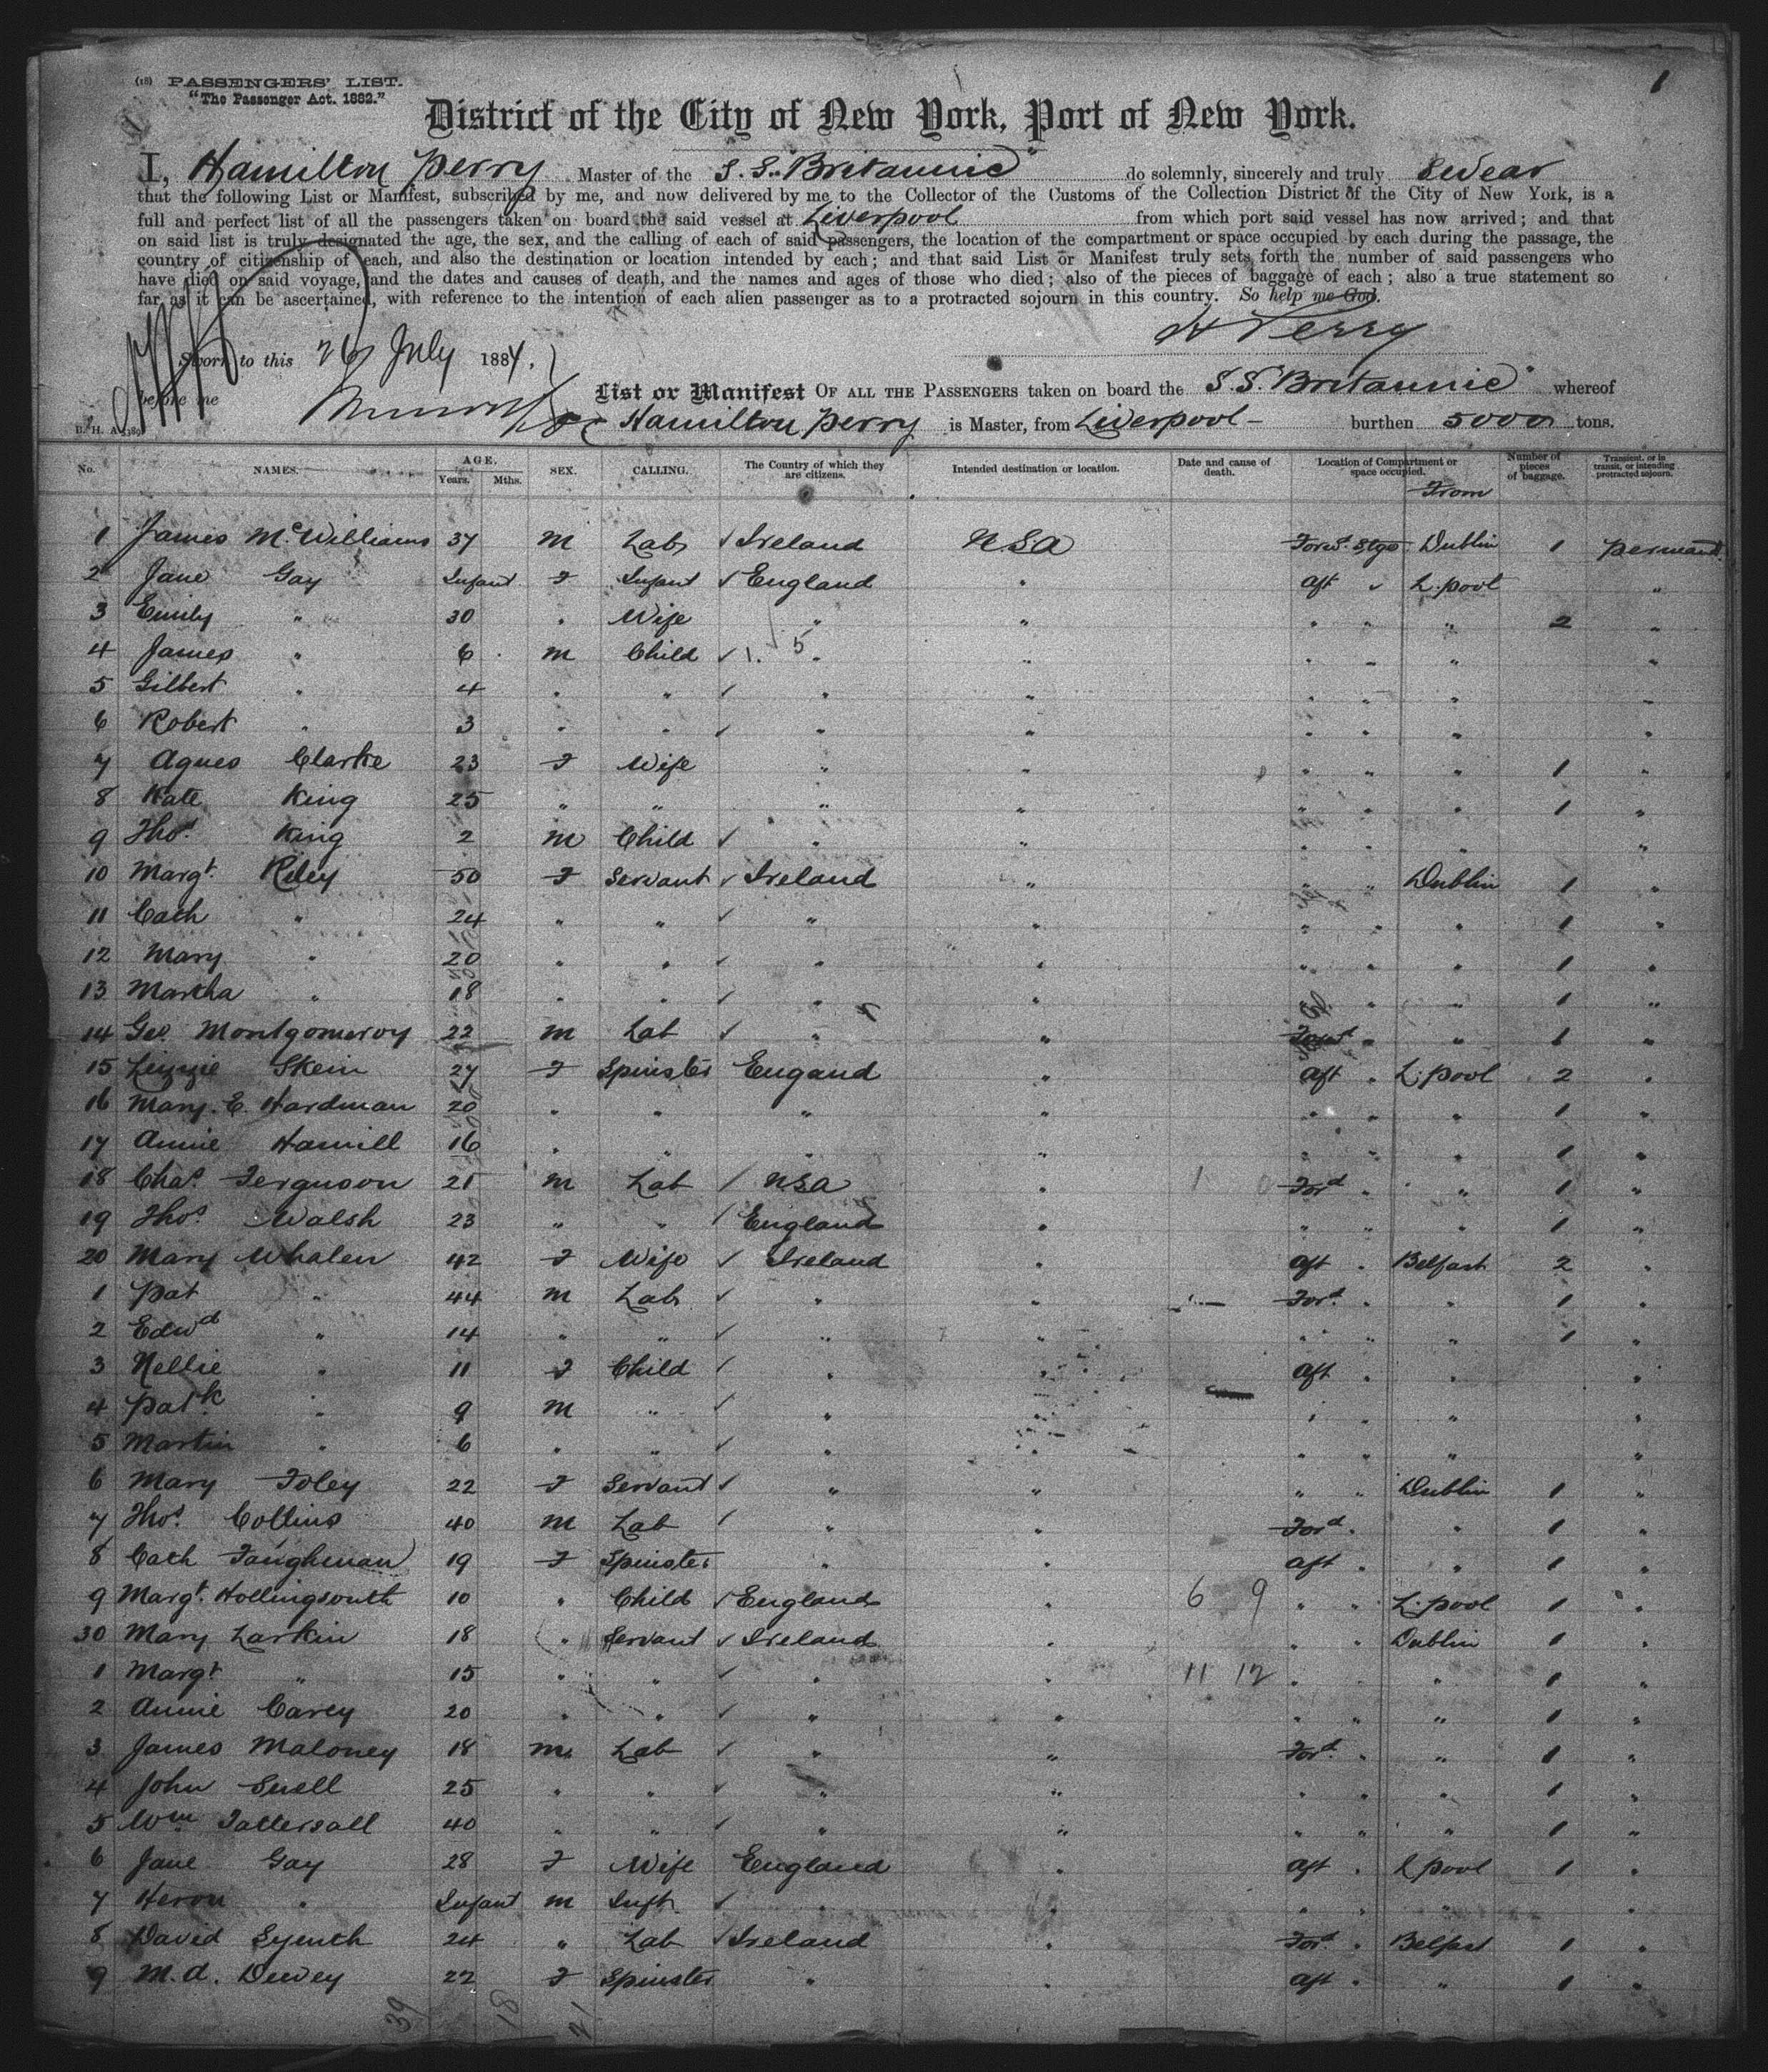 1
(18) PASSENGERS' LIST.
"The Passenger Act. 1882."
District of the City of New York, Port of New York.
I, Hamilton Perry Master of the S.S. "Britannic" do solemnly, sincerely and truly Swear
that the following List or Manifest, subscribed by me, and now delivered by me to the Collector of the Customs of the Collection District of the City of New York, is a
full and perfect list of all the passengers taken on board the said vessel at Liverpool from which port said vessel has now arrived; and that
on said list is truly designated the age, the sex, and the calling of each of said passengers, the location of the compartment or space occupied by each during the passage, the
country of citizenship of each, and also the destination or location intended by each; and that said List or Manifest truly sets forth the number of said passengers who
have died on said voyage, and the dates and causes of death, and the names and ages of those who died; also of the pieces of baggage of each; also a true statement so
far as it can be ascertained, with reference to the intention of each alien passenger as to a protracted sojourn in this country. So help me God.
H Perry
Sworn to this 26 July 1884.
before me
List or Manifest OF ALL THE PASSENGERS taken on board the S.S. "Britannic" whereof
Hamilton Perry is Master, from Liverpool - burthen 5000 tons.
No. NAMES. AGE. Years. Mths. SEX. CALLING. The Country of which they are citizens. Intended destination or location. Date and cause of death. Location of Compartment or space occupied. From Number of pieces of baggage. Transient, or in transit, or intending protracted sojourn.
1 James McWilliams 37 M Lab Ireland USA Forwd. Stge Dublin 1 permant
2 Jane Gay Infant F Infant England " aft " L.pool "
3 Emily " 30 " Wife " " " " " 2 "
4 James " 6 M Child 1. 5 " " " " " "
5 Gilbert " 4 " " " " " " " "
6 Robert " 3 " " " " " " " "
7 Agnes Clarke 23 F Wife " " " " " 1 "
8 Kate King 25 " " " " " " " 1 "
9 Thos. King 2 M Child " " " " " "
10 Margt. Riley 50 F Servant Ireland " " " Dublin 1 "
11 Cath " 24 " " " " " " " 1 "
12 Mary " 20 " " " " " " " 1 "
13 Martha " 18 " " " " " " " 1 "
14 Geo. Montgomeroy 22 M Lab " " Forwd " " 1 "
15 Lizzie Skein 27 F Spinster Engand " aft " L.pool 2 "
16 Mary. E. Hardman 20 " " " " " " " 1 "
17 Annie Hamill 16 " " " " " " " 1 "
18 Chas. Ferguson 21 M Lab USA " Ford " " 1 "
19 Thos. Walsh 23 " " England " " " " 1 "
20 Mary Whalen 42 F Wife Ireland " aft " Belfast 2 "
1 Pat " 44 M Lab " " Ford. " " 1 "
2 Edwd " 14 " " " " " " " 1 "
3 Nellie " 11 F Child " " aft " " "
4 Patk " 9 M " " " " " " "
5 Martin " 6 " " " " " " " "
6 Mary Foley 22 F Servant " " " " Dublin 1 "
7 Thos. Collins 40 M Lab " " Ford. " " 1 "
8 Cath Faughman 19 F Spinster " " aft " " 1 "
9 Margt. Hollingsouth 10 " Child England " 6 9 " " L.pool 1 "
30 Mary Larkin 18 " Servant Ireland " " " Dublin 1 "
1 Margt " 15 " " " " 11 12 " " " 1 "
2 Annie Carey 20 " " " " " " " 1 "
3 James Maloney 18 M Lab " " Ford. " " 1 "
4 John Snell 25 " " " " " " " 1 "
5 Wm Tattersall 40 " " " " " " " 1 "
6 Jane Gay 28 F Wife England " aft " L pool 1 "
7 Heron " Infant M Inft. " " " " " "
8 David Lynch 24 " Lab Ireland " Ford. " Belfast 1 "
9 M.A. Duvey 22 F Spinster " " aft " " 1 "
39 18 21